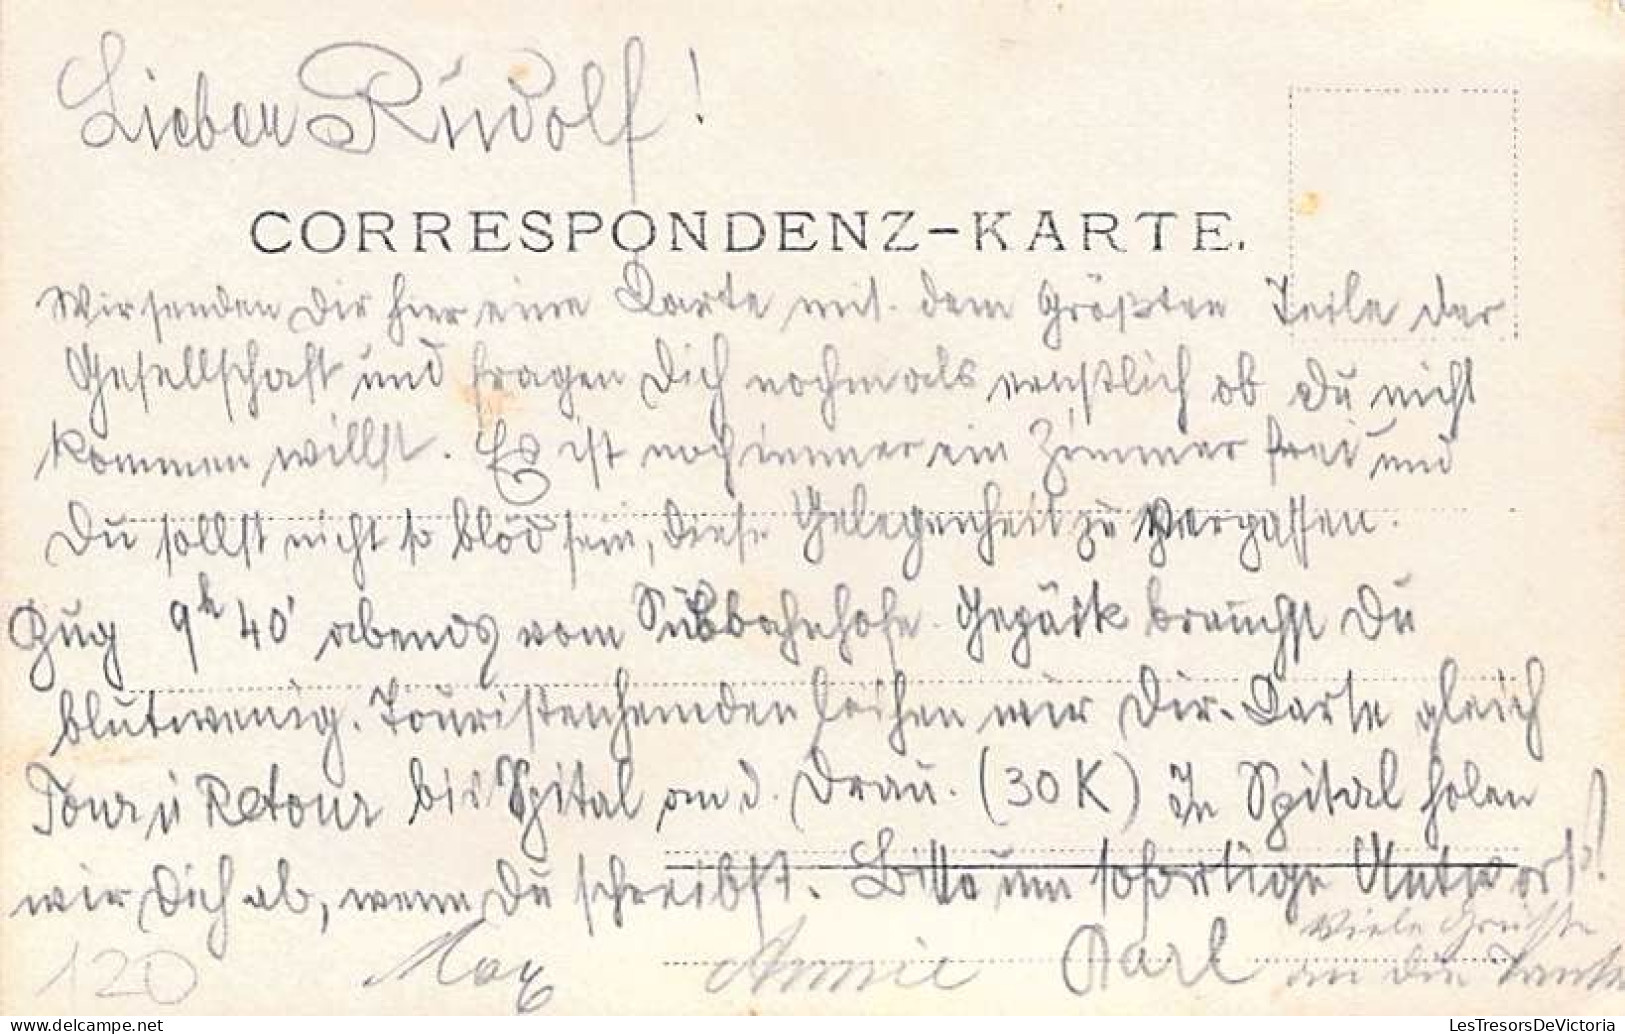 Lieber Rudolf!
CORRESPONDENZ-KARTE.
Wir senden Dir hier eine Karte mit dem Größten Teile der
Gesellschaft und fragen Dich nochmals ernstlich ob Du nicht
kommen willst. Es ist noch immer ein Zimmer frei und
Du sollst nicht so blöd sein, diese Gelegenheit zu vergassen.
Zug 9h 40' abends vom Südbahnhofe. Gepäck brauchst Du
blutwenig. Touristenhemden leihen wir Dir. Karte gleich
Tour u Retour bis Spital an d. Drau. (30 K) In Spital holen
wir Dich ab, wenn Du schreibst. Bitte um sofortige Antwort!
Max Annie Karl Viele Grüsse
an die Tante
120
LesTresorsDeVictoria